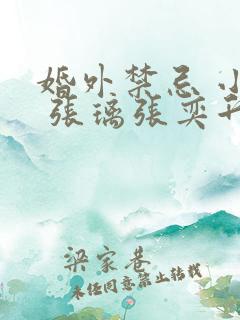 婚外禁忌 小
张璃张奕
梁家巷
未经同意禁止转载